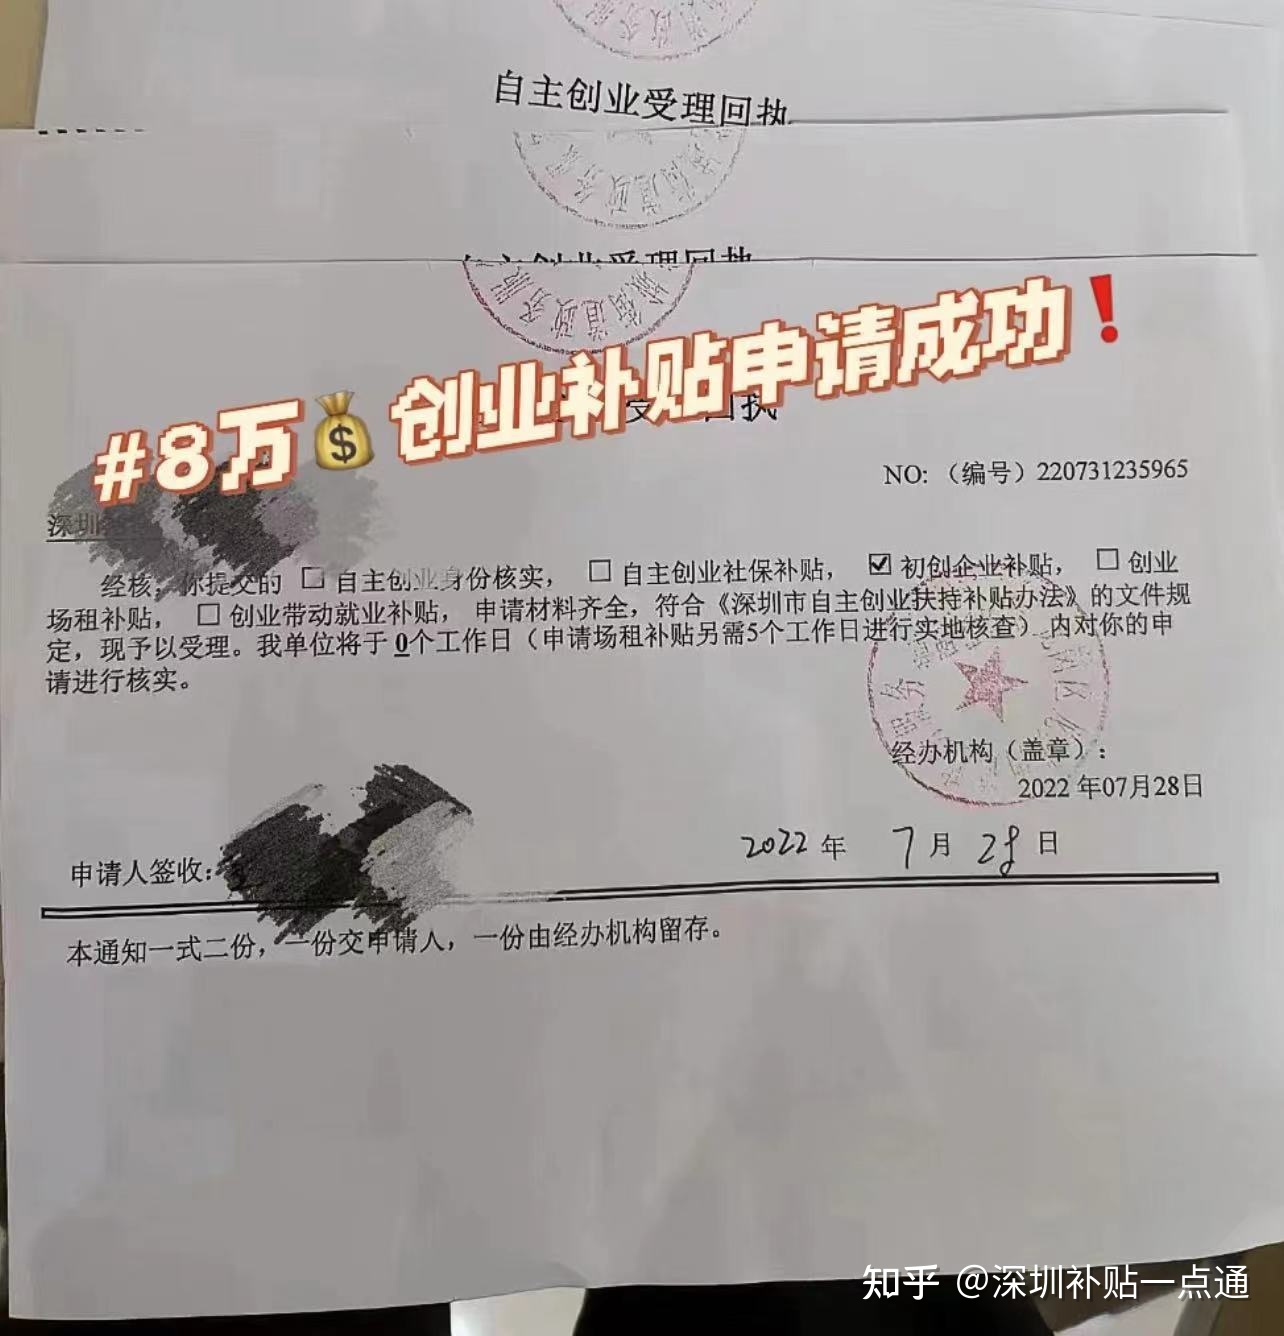 自主创业受理回执
自主创业受理回执
#8万创业补贴申请成功❗
NO:（编号）220731235965
深圳
经核，你提交的 □ 自主创业身份核实， □ 自主创业社保补贴， ☑ 初创企业补贴， □ 创业
场租补贴， □ 创业带动就业补贴， 申请材料齐全，符合《深圳市自主创业扶持补贴办法》的文件规
定，现予以受理。我单位将于 0个工作日（申请场租补贴另需5个工作日进行实地核查）内对你的申
请进行核实。
经办机构（盖章）：
2022 年07月28日
申请人签收：
2022 年 7 月 28 日
本通知一式二份，一份交申请人，一份由经办机构留存。
知乎 @深圳补贴一点通